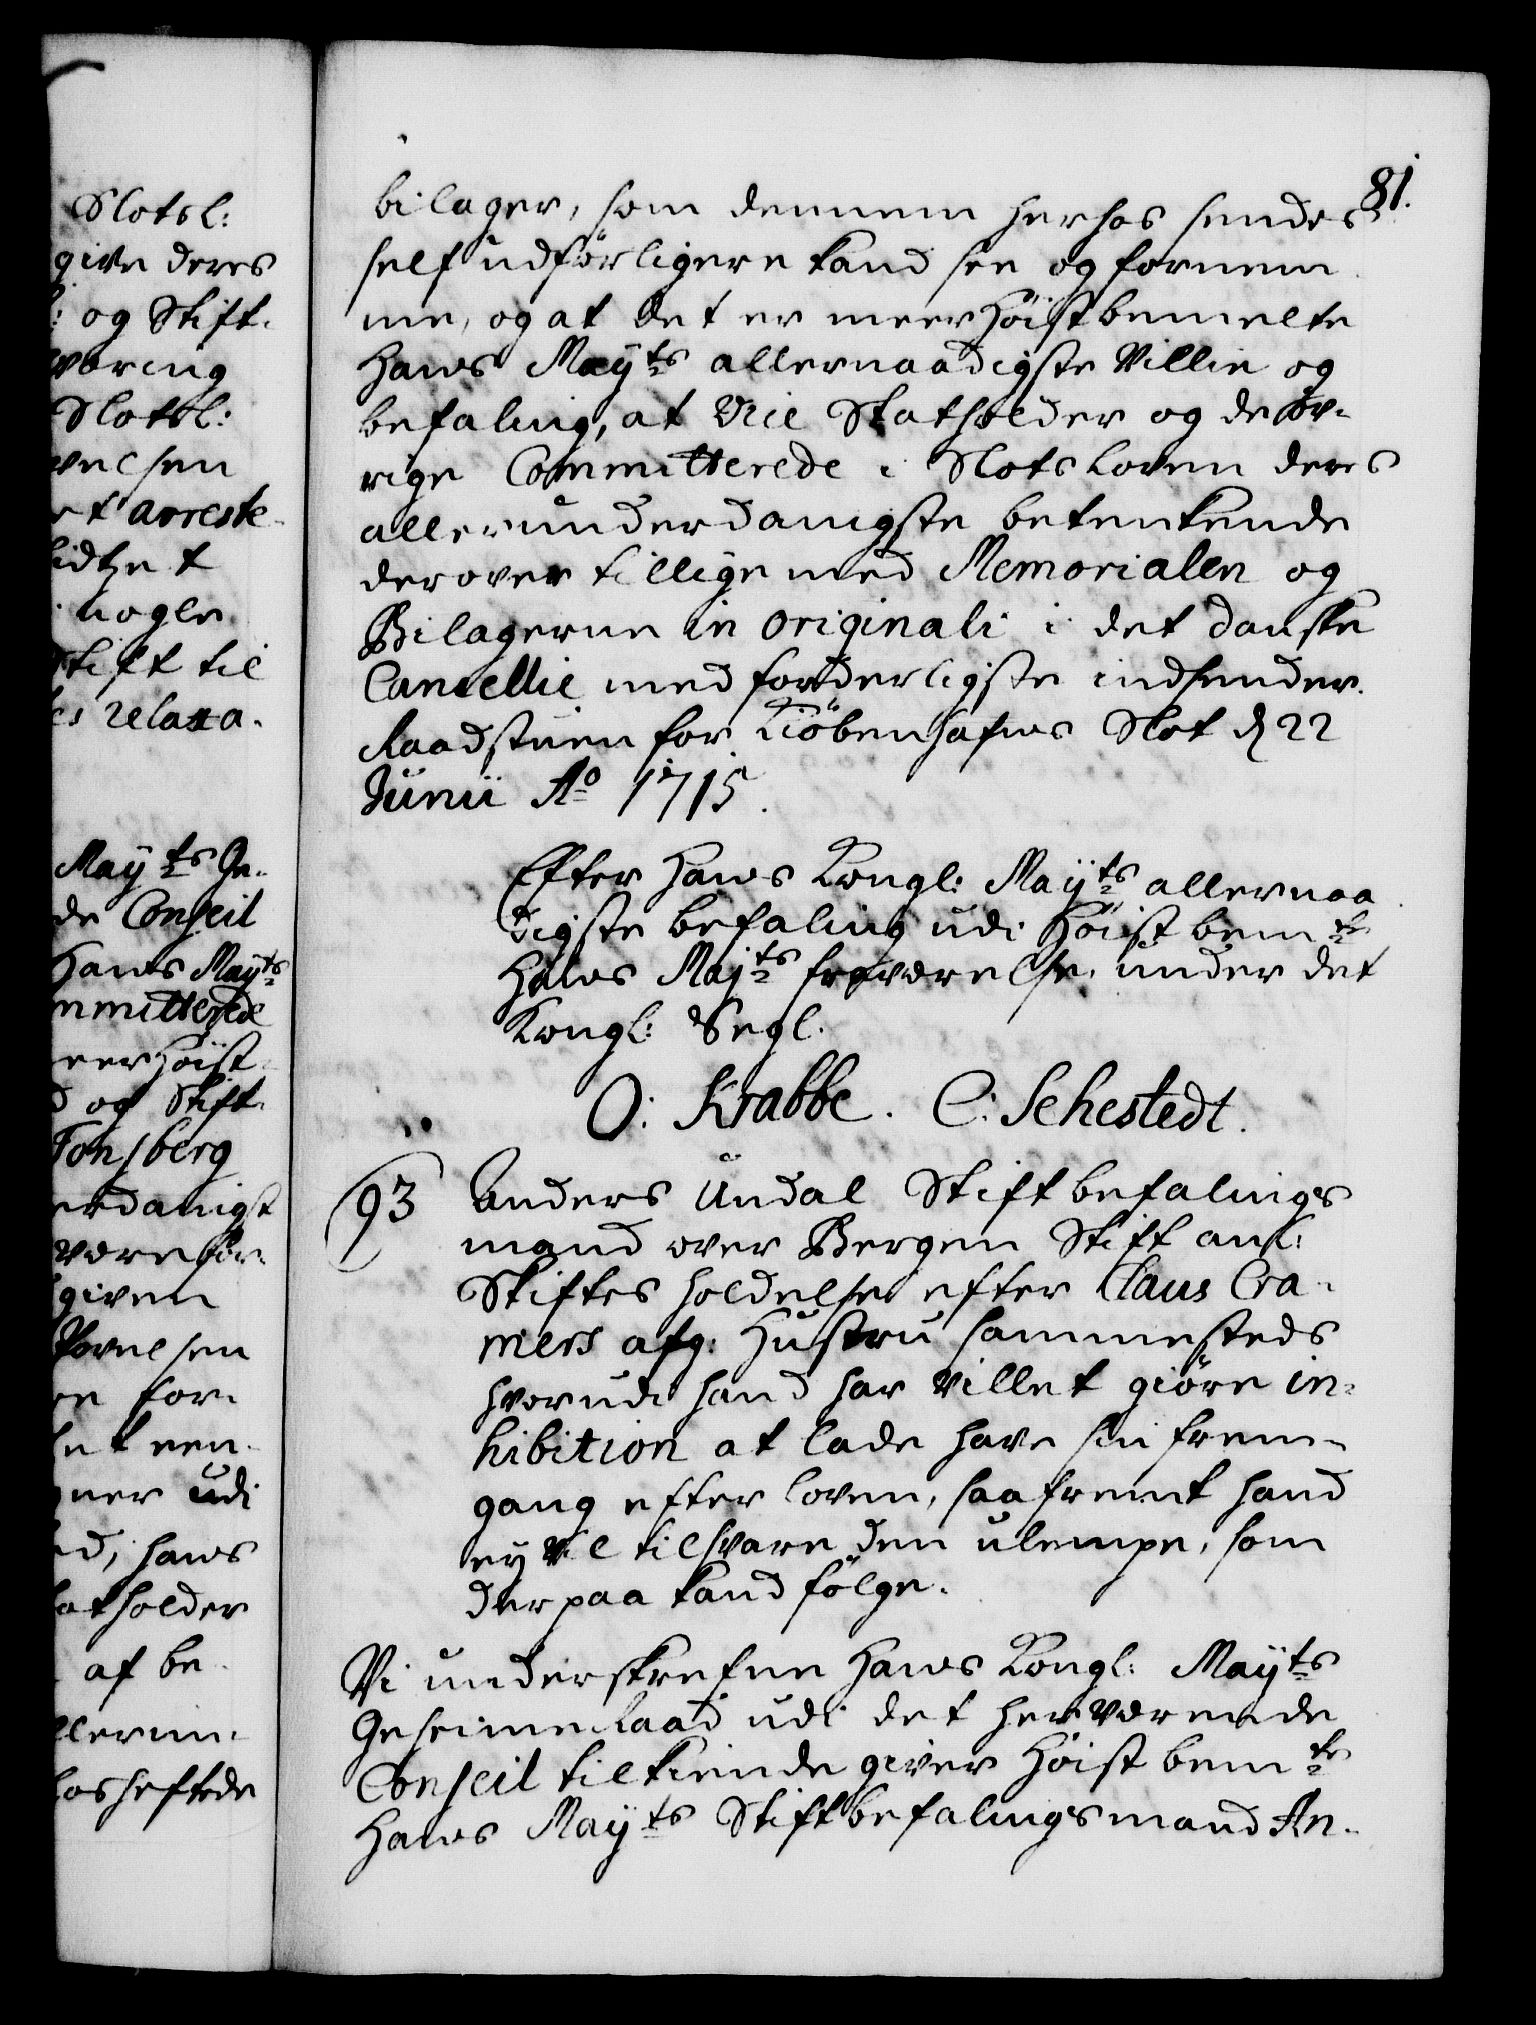 Slotsl:
give deres
og Stift-
varing
Slotsl:
velsen
et arreste-
lidtzet
nogle
Stift til
es relaxa-
Mayts Ge-
de Conseil
Hans Mayts
mmitterede
eer Höist-
d og Stift-
Tonsberg
erdanigst
være for-
given
skrivelsen
re for-
het een-
gner udi
ed, hans
atholder
af be-
llerun-
hosheftede
81.
bilager, som dennem herhos sendes
self udförligere kand see og fornem
me, og at det er meerhöistbemelte
Hans Mayts allernaadigste Villie og
befaling, at Vice Statholder og de öv-
rige Committerede i Slotsloven deres
allerunderdanigste betenkende
derover tillige med Memorialen og
Bilagerne in originali i det danske
Cancellie med forderligste indsender.
Raadstuen for Kiöbenhafns Slot d 22
Junii Ao 1715.
Efter Hans Kongl: Mayts allernaa
digste befaling udi Höistbemte
Hans Majts fraværelse, under det
Kongl: Segl.
O: Krabbe. C: Sehestedt.
93 Anders Undal Stiftbefalings
mand over Bergen Stift anl:
Skiftes holdelse efter Claus Cra-
mers afg: Hustru sammesteds
hvorudi hand har villet giöre in-
hibition at lade have sin frem-
gang efter loven, saafremt hand
ey vil tilsvare den ulempe, som
derpaa kand fölge.
Vi underskrefne Hans Kongl: Mayts
Geheime Raad udi det herværende
Conseil tilkiende giver Höistbemte
Hans Mayts Stiftbefalingsmand An-